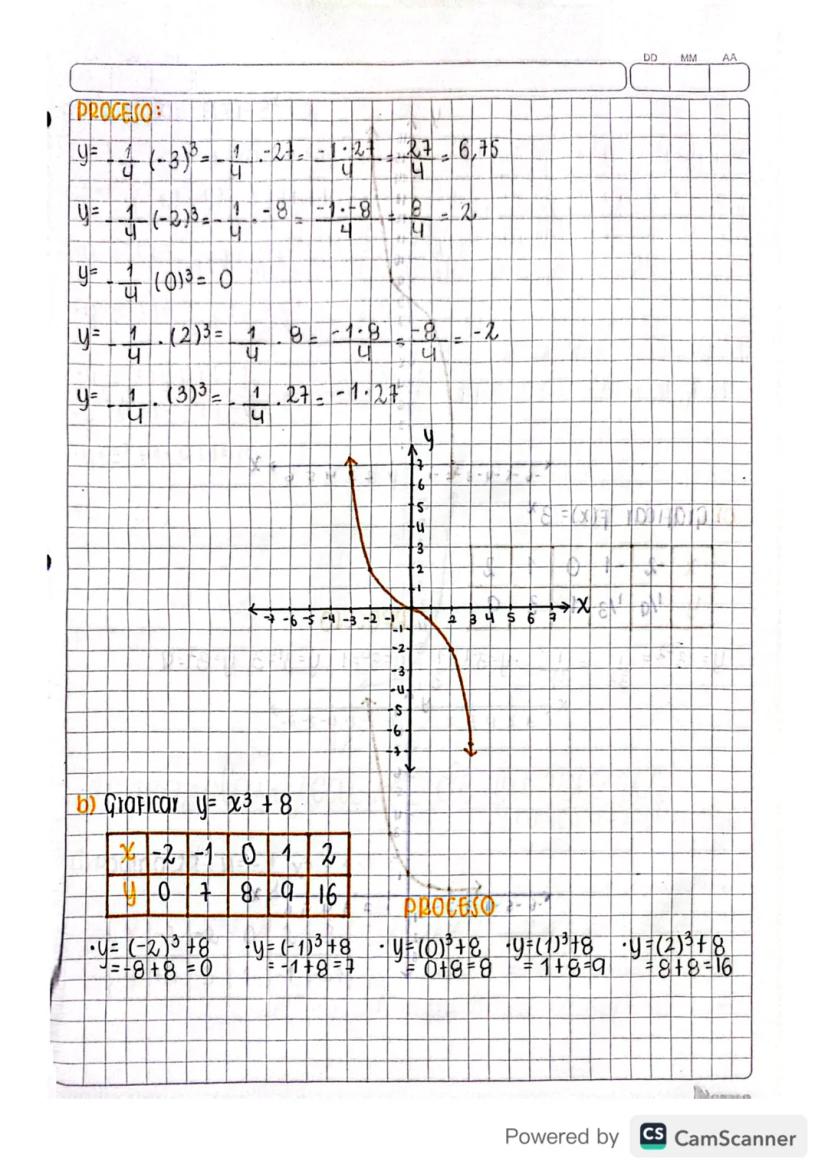 DD MM AA
PROCESO:
y= -1/4 (-3)³ = -1/4 · -27 = -1·27/4 = 27/4 = 6,75
y= -1/4 (-2)³ = -1/4 · -8 = -1·-8/4 = 8/4 = 2
y= -1/4 (0)³ = 0
y= -1/4 · (2)³ = 1/4 · 8 = -1·8/4 = -8/4 = -2
y= -1/4 · (3)³ = -1/4 · 27 = -1·27
y
7
6
5
4
3
2
1
-7 -6 -5 -4 -3 -2 -1 2 3 4 5 6 7 x
-1
-2
-3
-4
-5
-6
-7
b) Graficar y= x³ + 8
x -2 -1 0 1 2
y 0 7 8 9 16
PROCESO
·y= (-2)³ +8 ·y= (-1)³+8 ·y=(0)³+8 ·y=(1)³+8 ·y=(2)³+8
=-8+8 =0 = -1+8=7 = 0+8=8 = 1+8=9 =8+8=16
Powered by CS CamScanner